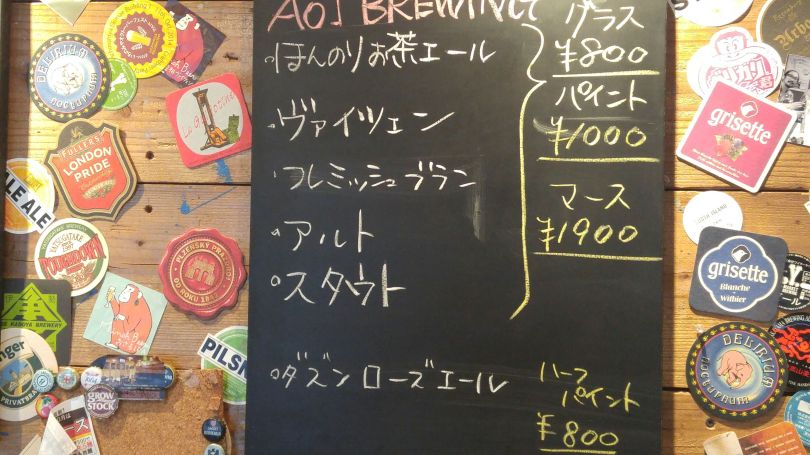 AOI BREWING
・ほんのりお茶エール
・ヴァイツェン
・フレミッシュブラン
・アルト
・スタウト
グラス
¥800
パイント
¥1000
マース
¥1900
・ダズンローズエール
ハーフ
パイント
¥800
DELIRIUM
nocturnum
La Guillotine
FULLER'S
LONDON
PRIDE
PALE ALE
YATSUGATAKE
TOUCHDOWN
PLZEŇSKÝ PRAZDROJ
OD ROKU 1842
KADOYA BREWERY
PRIVATBRAU
PILSN
GROW
STOCK
grisette
grisette
Blanche
Witbier
DELIRIUM
nocturnum